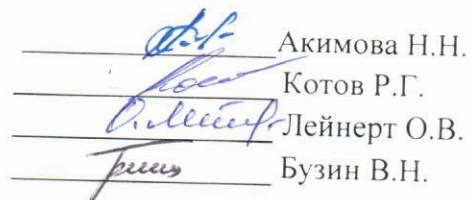 Акимова Н.Н.
Котов Р.Г.
Лейнерт О.В.
Бузин В.Н.